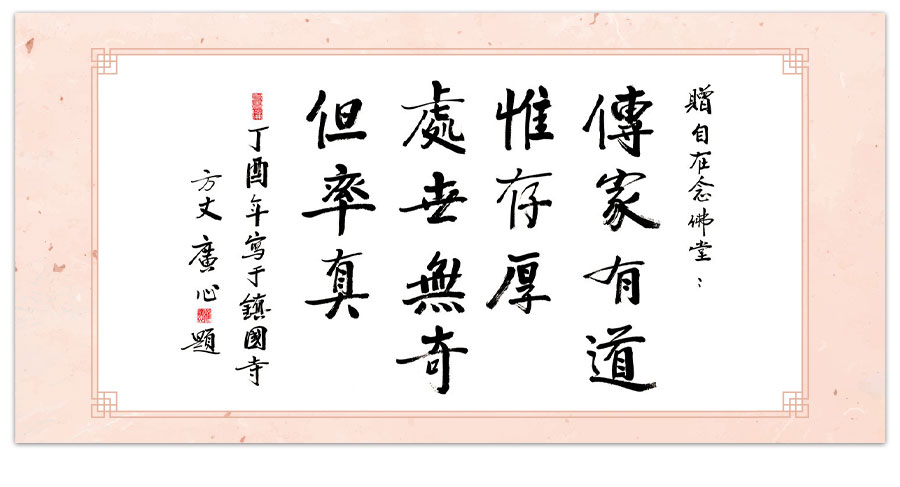 贈自在念佛堂：
傳家有道
惟存厚
處世無奇
但率真
丁酉年寫于鎮國寺
方丈廣心題